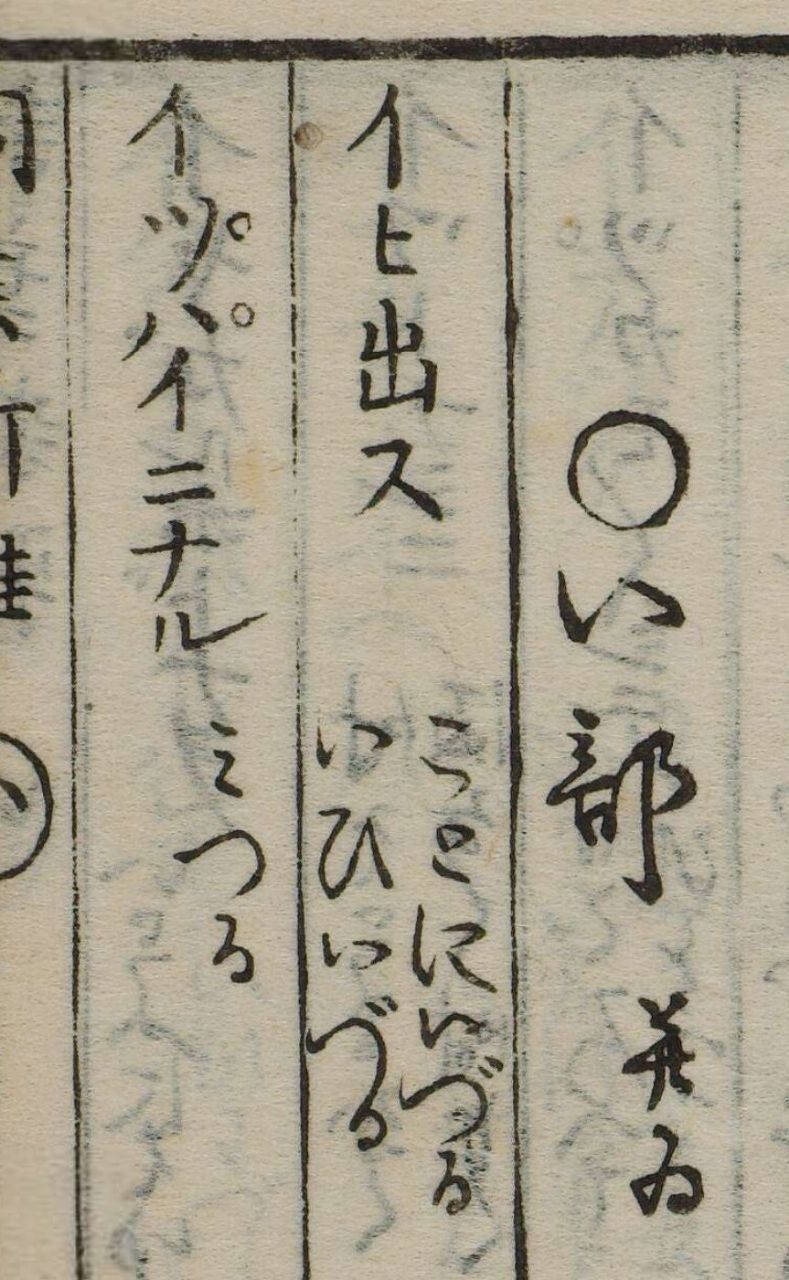 ○い部 並ゐ
イヒ出ス
ことにいづる
いひいづる
イツ゚パイニナル
みつる